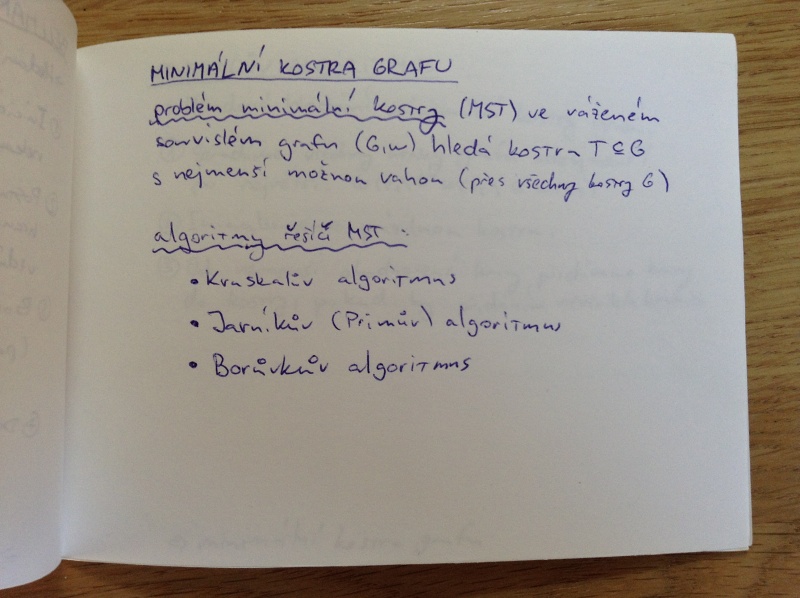 MINIMÁLNÍ KOSTRA GRAFU
problém minimální kostry (MST) ve váženém
souvislém grafu (G,w) hledá kostru T ⊆ G
s nejmenší možnou vahou (přes všechny kostry G)
algoritmy řešící MST:
• Kruskalův algoritmus
• Jarníkův (Primův) algoritmus
• Borůvkův algoritmus